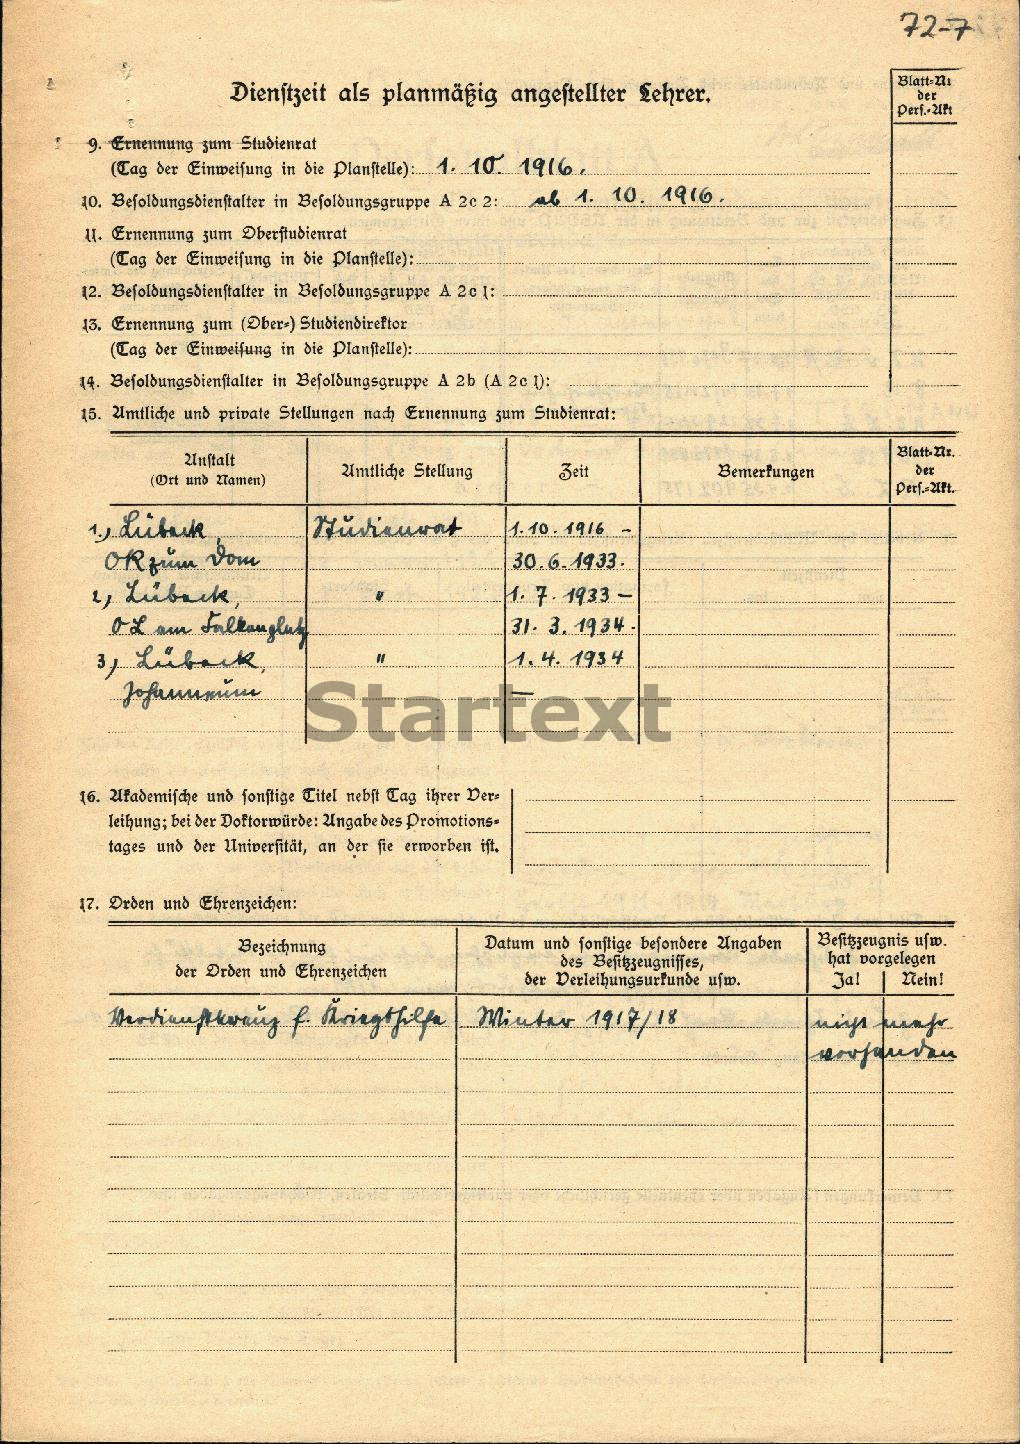 72-7
Dienstzeit als planmäßig angestellter Lehrer.
Blatt-Nr
der
Pers.-Akt
9. Ernennung zum Studienrat
(Tag der Einweisung in die Planstelle): 1. 10. 1916.
10. Besoldungsdienstalter in Besoldungsgruppe A 2c 2: ab 1. 10. 1916.
11. Ernennung zum Oberstudienrat
(Tag der Einweisung in die Planstelle):
12. Besoldungsdienstalter in Besoldungsgruppe A 2c 1:
13. Ernennung zum (Ober-) Studiendirektor
(Tag der Einweisung in die Planstelle):
14. Besoldungsdienstalter in Besoldungsgruppe A 2b (A 2c 1):
15. Amtliche und private Stellungen nach Ernennung zum Studienrat:
Anstalt
(Ort und Namen)
Amtliche Stellung
Zeit
Bemerkungen
Blatt-Nr.
der
Pers.-Akt.
1.) Lübeck, Studienrat 1.10.1916 –
OR zum Dom 30.6.1933.
2.) Lübeck, " 1.7.1933 –
OL am Falkenplatz 31.3.1934.
3.) Lübeck, " 1.4.1934
Johanneum –
Startext
16. Akademische und sonstige Titel nebst Tag ihrer Ver-
leihung; bei der Doktorwürde: Angabe des Promotions-
tages und der Universität, an der sie erworben ist.
17. Orden und Ehrenzeichen:
Bezeichnung
der Orden und Ehrenzeichen
Datum und sonstige besondere Angaben
des Besitzzeugnisses,
der Verleihungsurkunde usw.
Besitzzeugnis usw.
hat vorgelegen
Ja! Nein!
Verdienstkreuz f. Kriegshilfe Winter 1917/18 nicht mehr
vorhanden